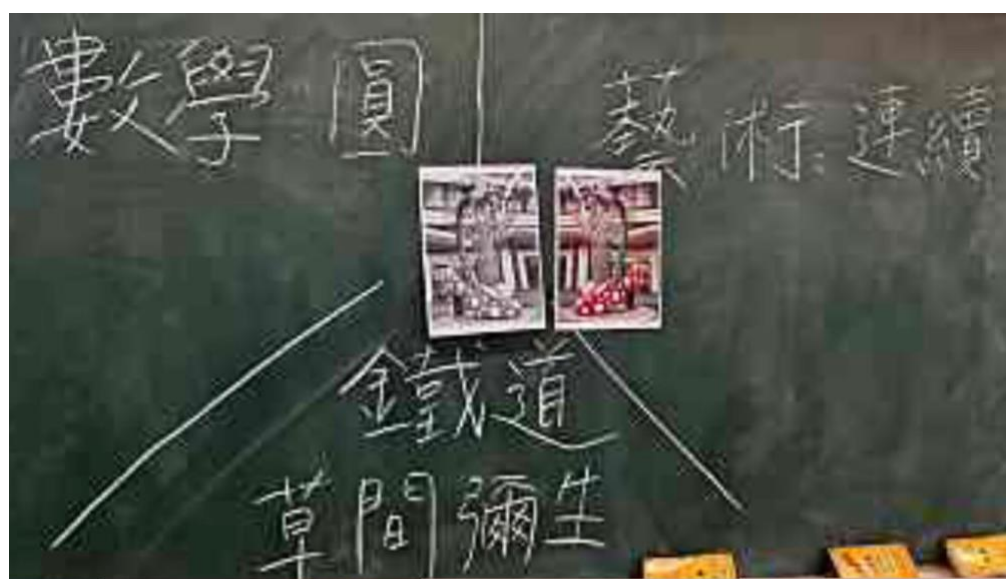 數學 圓
藝術 連續
鐵道
草間彌生